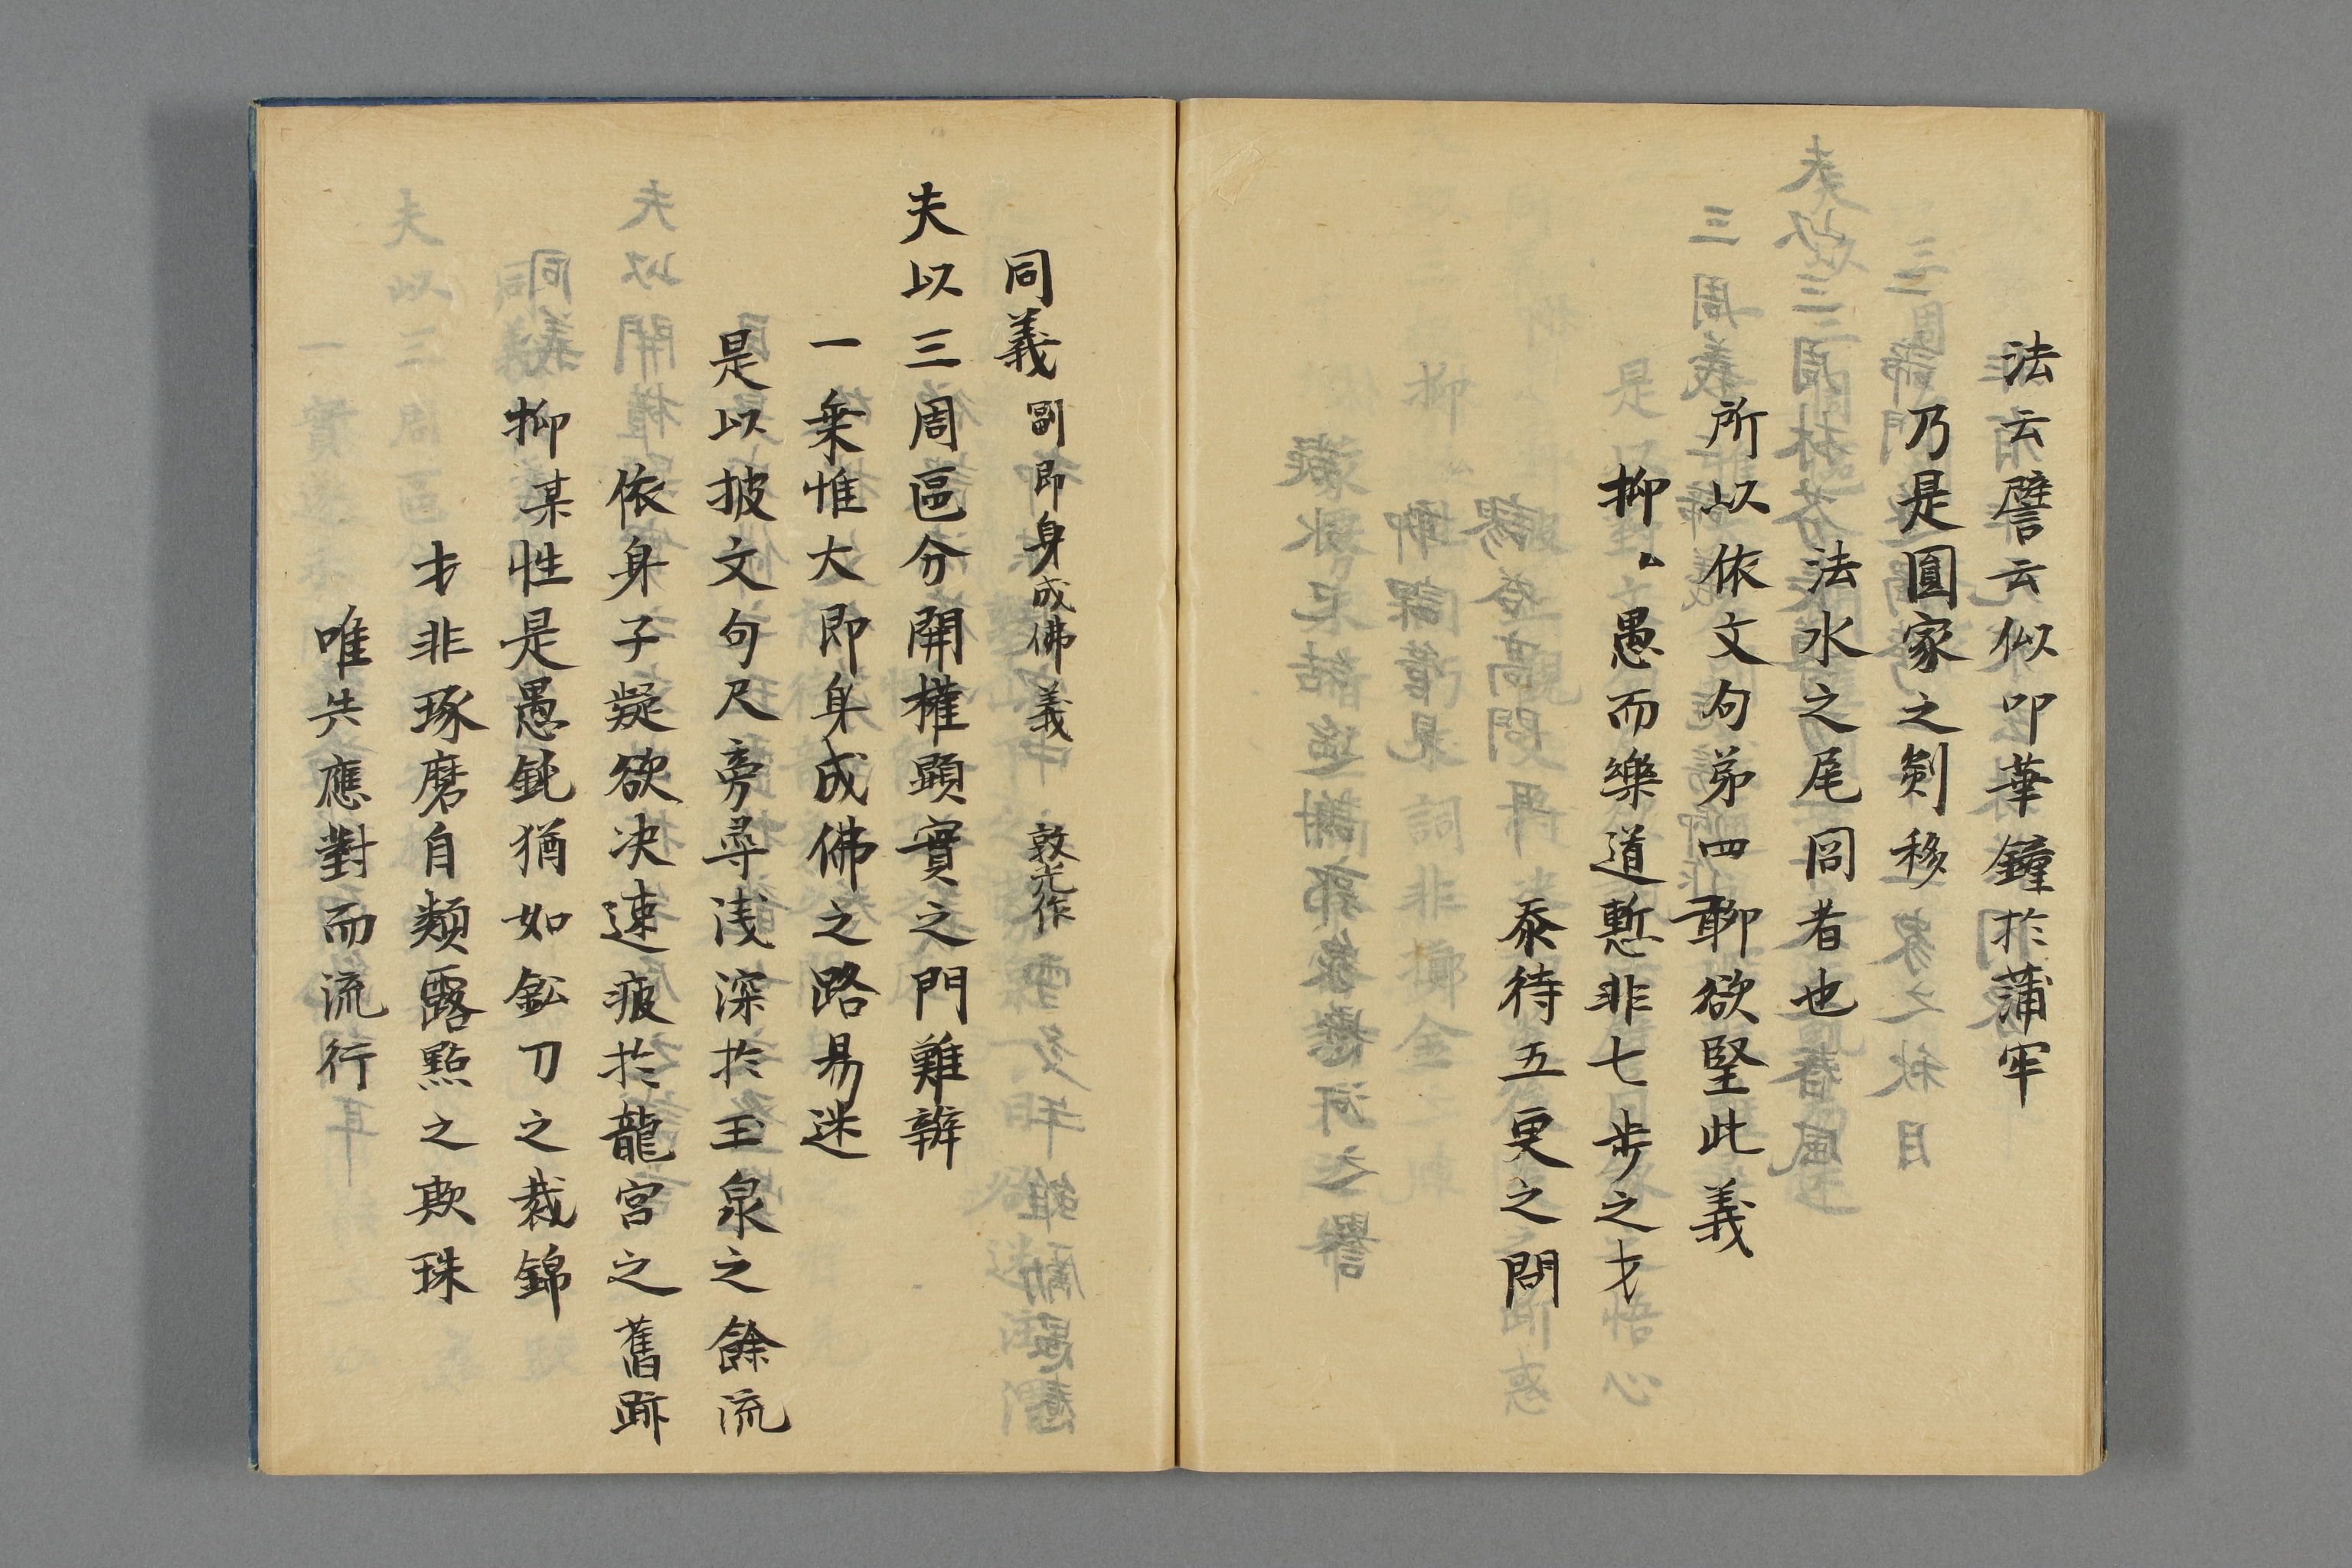 法云譬云似叩華鐘於蒲牢
乃是圓家之剱移
法水之尾同者也
所以依文句弟四聊欲堅此義
抑〻愚而樂道慙非七步之才
忝待五更之問
同義 副即身成佛義 敦光作
夫以三周區分開權顕實之門難辨
一乗惟大即身成佛之路易迷
是以披文句尺旁尋浅深於玉泉之餘流
依身子疑欲决速疲於龍宮之舊跡
抑某性是愚鈍猶如鈆刀之裁錦
才非琢磨自類露點之欺珠
唯共應對而流行